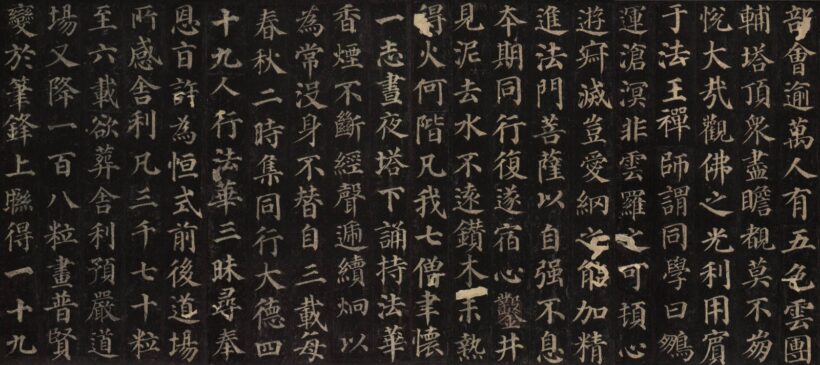 部會逾萬人有五色雲團
輔塔頂眾盡瞻覩莫不崩
悅大哉觀佛之光利用賓
于法王禪師謂同學曰鵬
運滄溟非雲羅之可頓心
遊寂滅豈愛網之能加精
進法門菩薩以自强不息
本期同行復遂宿心鑿井
見泥去水不遠鑽木未熱
得火何階凡我七僧聿懷
一志晝夜塔下誦持法華
香煙不斷經聲遞續炯以
為常沒身不替自三載每
春秋二時集同行大德四
十九人行法華三昧尋奉
恩旨許為恒式前後道場
所感舍利凡三千七十粒
至六載欲葬舍利預嚴道
場又降一百八粒畫普賢
變於筆鋒上聯得一十九